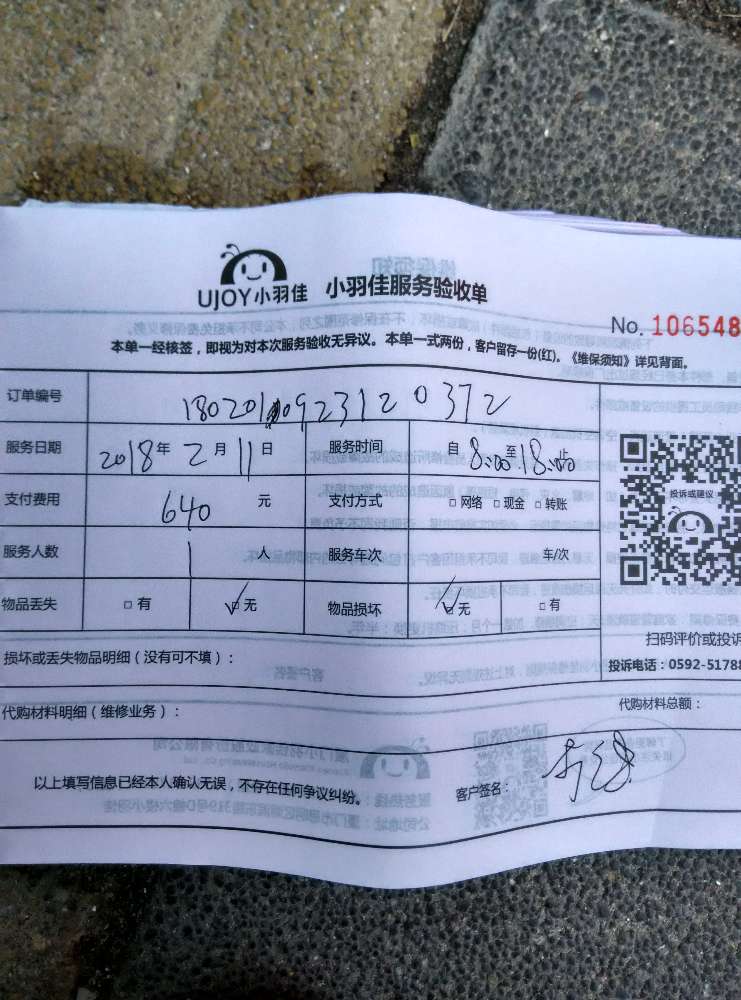 UJOY小羽佳 小羽佳服务验收单
No. 106548
本单一经核签，即视为对本次服务验收无异议。本单一式两份，客户留存一份(红)。《维保须知》详见背面。
订单编号
服务日期 2018年 2月 11日 服务时间 自 8:00至18:00止
支付费用 640 元 支付方式 □网络 □现金 □转账
服务人数 1 人 服务车次 车/次
物品丢失 □有 ☑无 物品损坏 ☑无 □有
投诉或建议
扫码评价或投诉
投诉电话：0592-51788
损坏或丢失物品明细（没有可不填）：
代购材料明细（维修业务）： 代购材料总额：
以上填写信息已经本人确认无误，不存在任何争议纠纷。 客户签名：